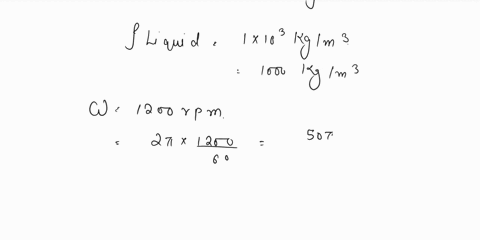 ρ Liquid = 1 × 10³ Kg/m³
= 1000 Kg/m³
ω = 1200 rpm.
= 2π × 1200/60 = 50π